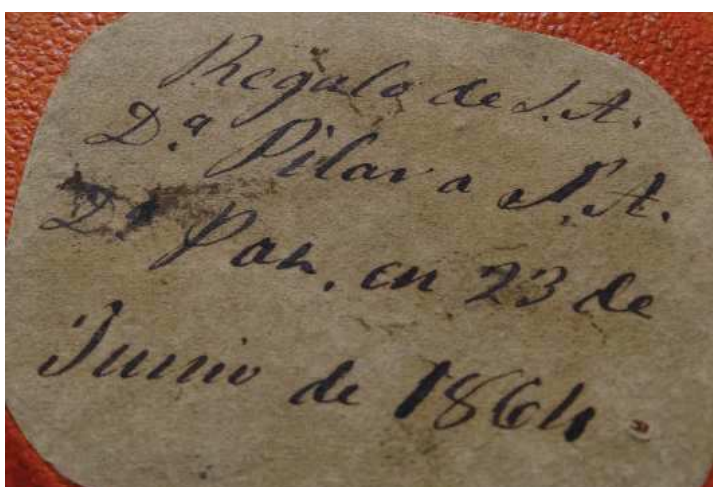 Regalo de S.A.
D.ª Pilar a S.A.
Dª Paz, en 23 de
Junio de 1864.